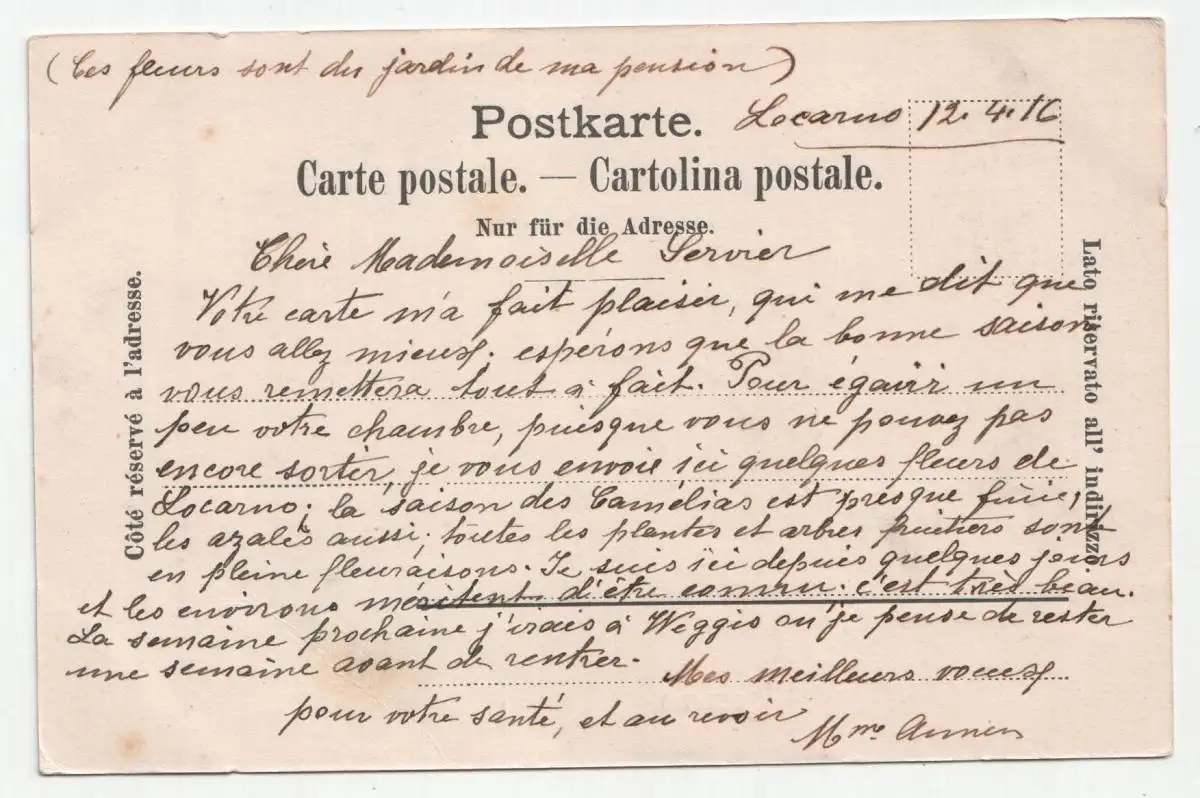 (Ces fleurs sont du jardin de ma pension)
Locarno 12.4.16
Postkarte.
Carte postale. — Cartolina postale.
Nur für die Adresse.
Côté réservé à l'adresse.
Lato riservato all' indirizzo.
Chère Mademoiselle Servier
Votre carte m'a fait plaisir, qui me dit que
vous allez mieux. espérons que la bonne saison
vous remettera tout à fait. Pour égaire un
peu votre chambre, puisque vous ne pouvez pas
encore sortir, je vous envoie ici quelques fleurs de
Locarno; la saison des Camélias est presque finie,
les azalés aussi; toutes les plantes et arbres fruitiers sont
en pleine fleuraisons. Je suis ici depuis quelques jours
et les environs meritent d'être connu. c'est très beau.
La semaine prochaine j'irais à Weggis ou je pense de rester
une semaine avant de rentrer.
Mes meilleurs voeux
pour votre santé, et au revoir
Mme